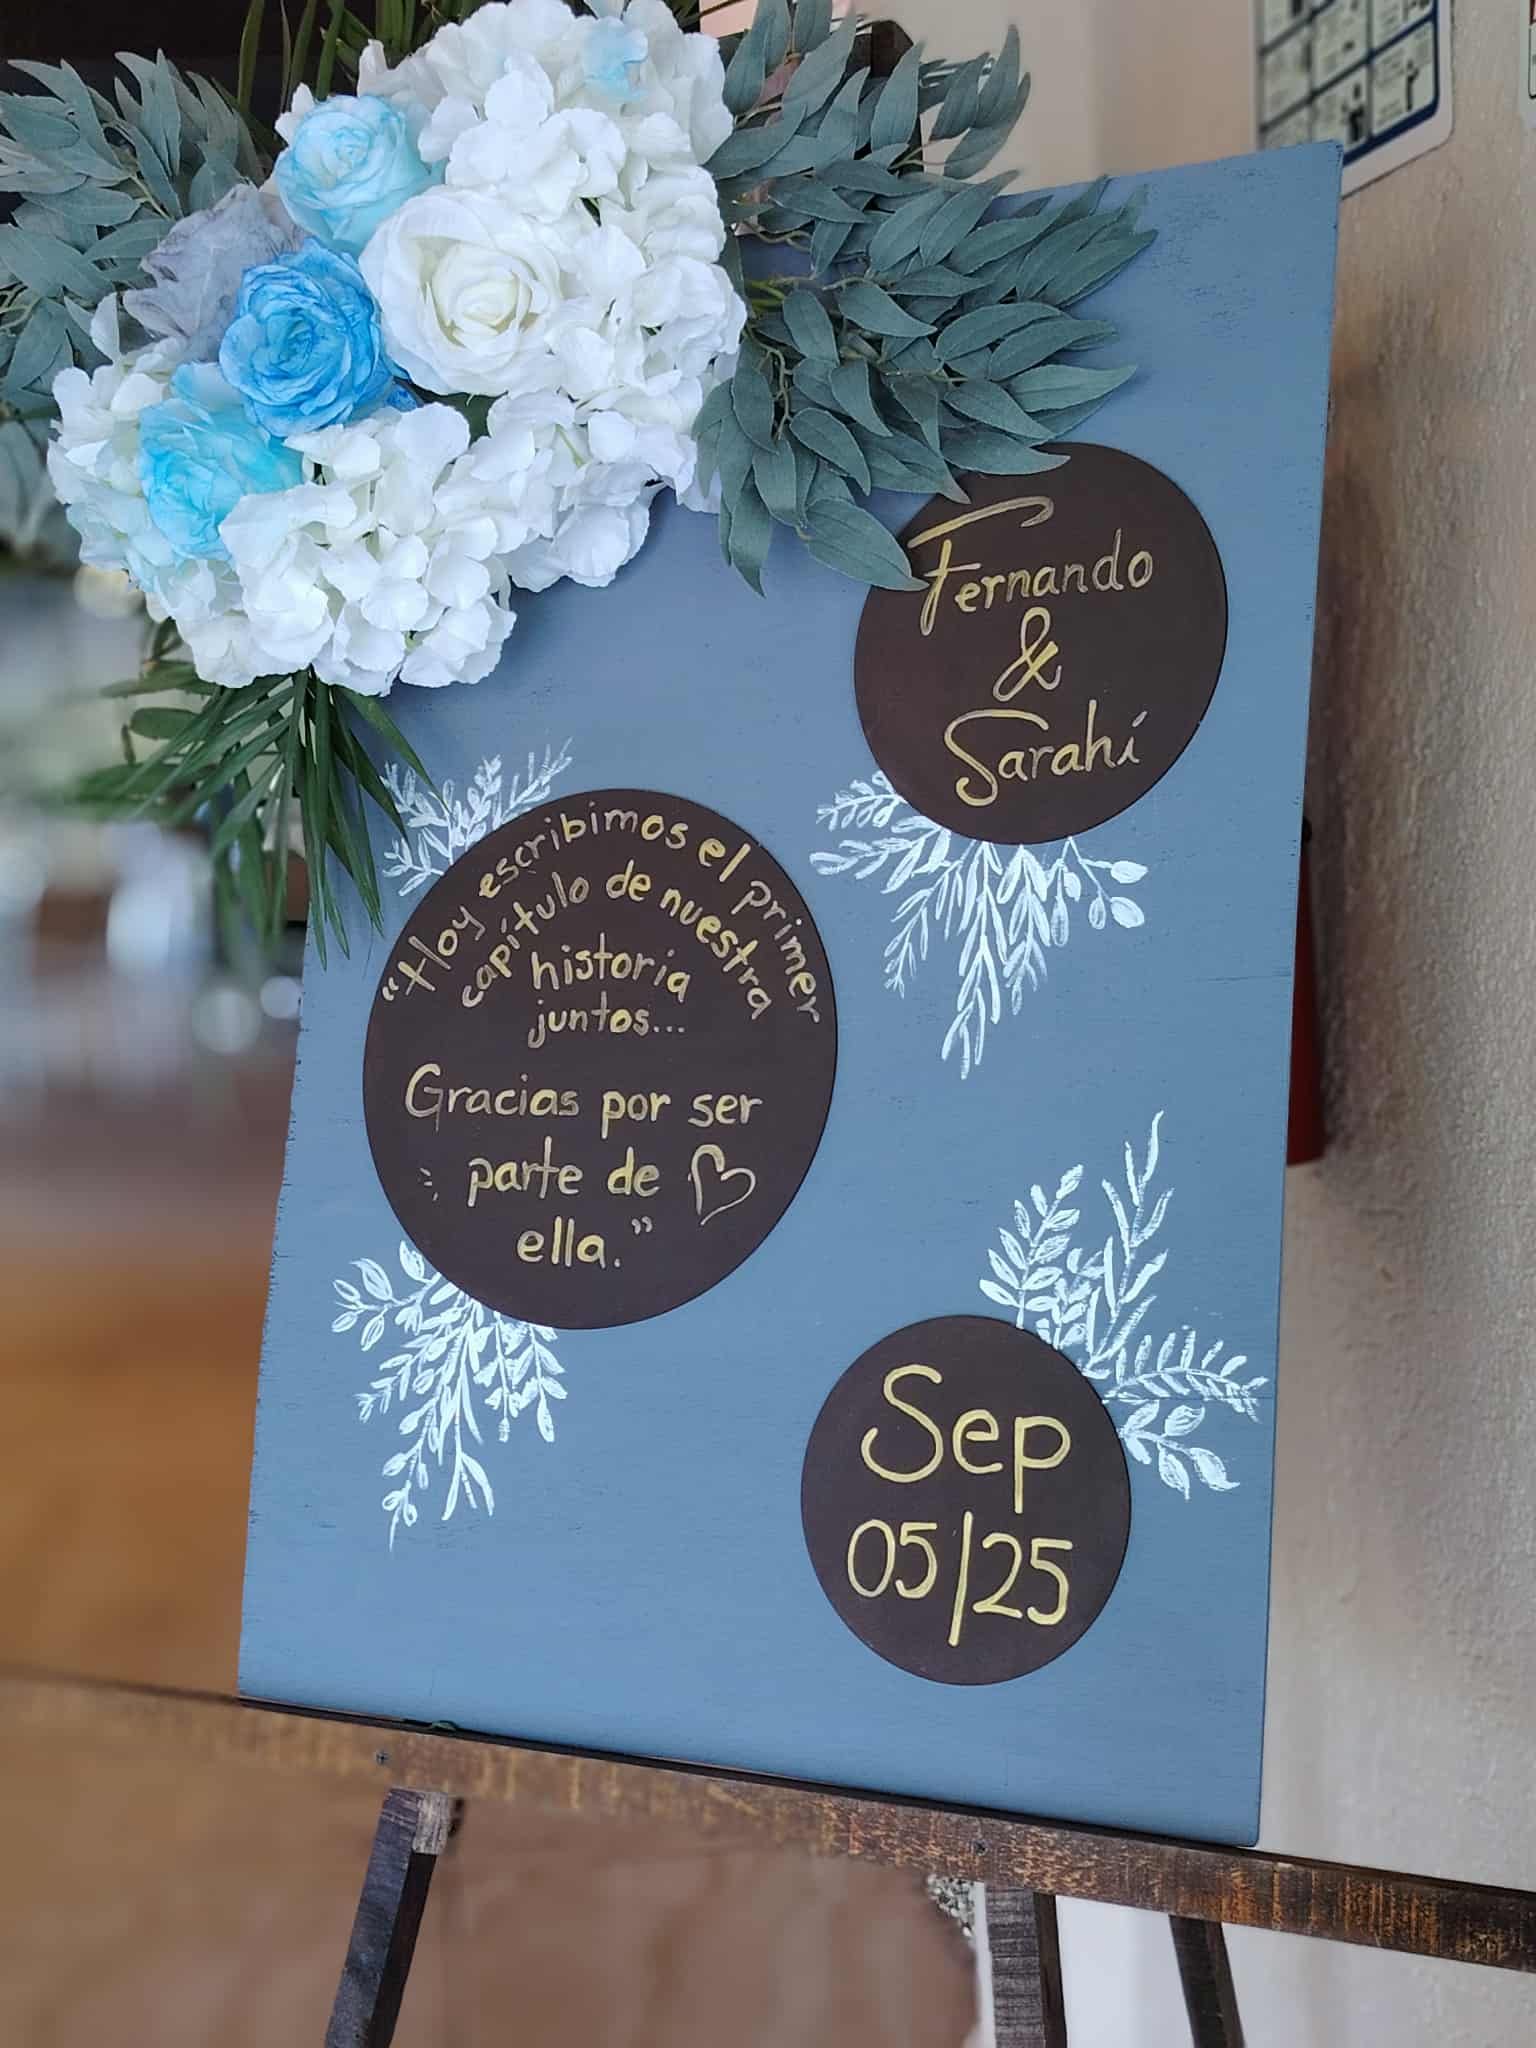 Fernando
&
Sarahí
"Hoy escribimos el primer
capítulo de nuestra
historia
juntos...
Gracias por ser
parte de
ella."
Sep
05/25